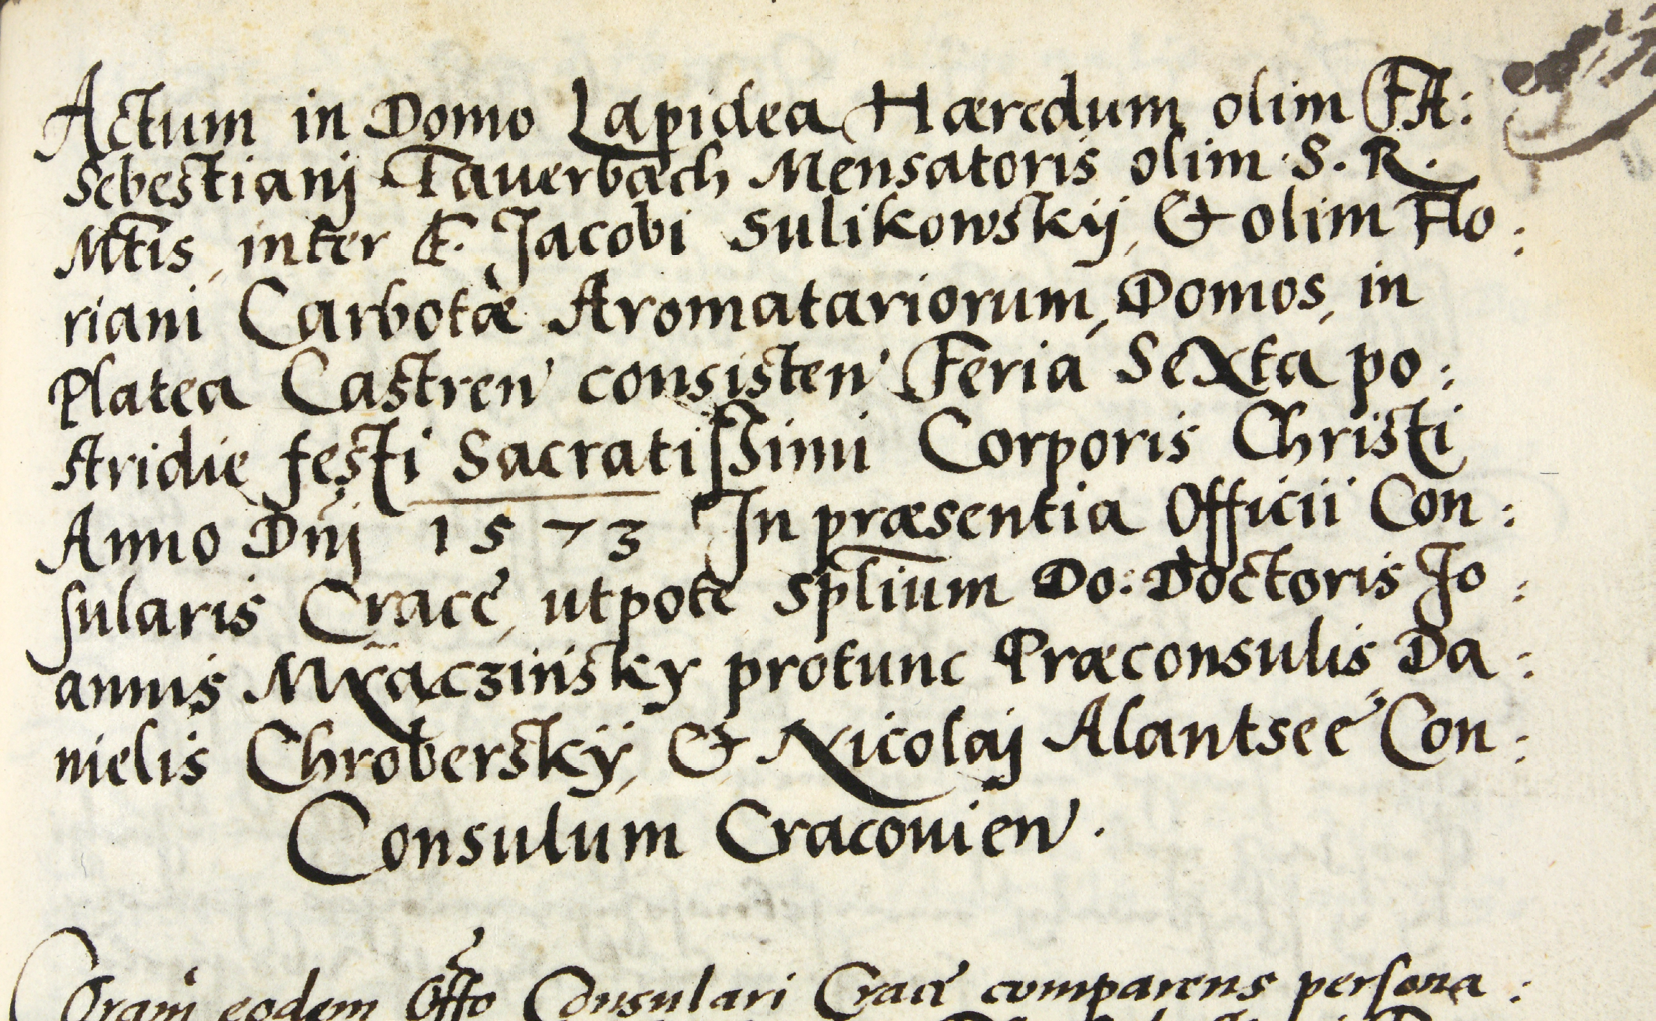 Actum in Domo Lapidea Hæredum olim FA:
Sebestianj Tauerbach Mensatoris olim S. R.
Mtis, inter F. Jacobi Sulikowskij, & olim Flo:
riani Carbotæ Aromatariorum, Domos, in
Platea Castren consisten Feria Sexta po:
stridie festi Sacratissimi Corporis Christi
Anno Dnj 1573 In præsentia Officii Con:
sularis Crace, utpote Splium Do: Doctoris Jo:
annis Mxaczinsky protunc Præconsulis Da:
nielis Chroberskÿ, & Nicolaj Alantsee Con:
Consulum Cracouien.
Coram eodem Offo Consulari Crace comparens persona: